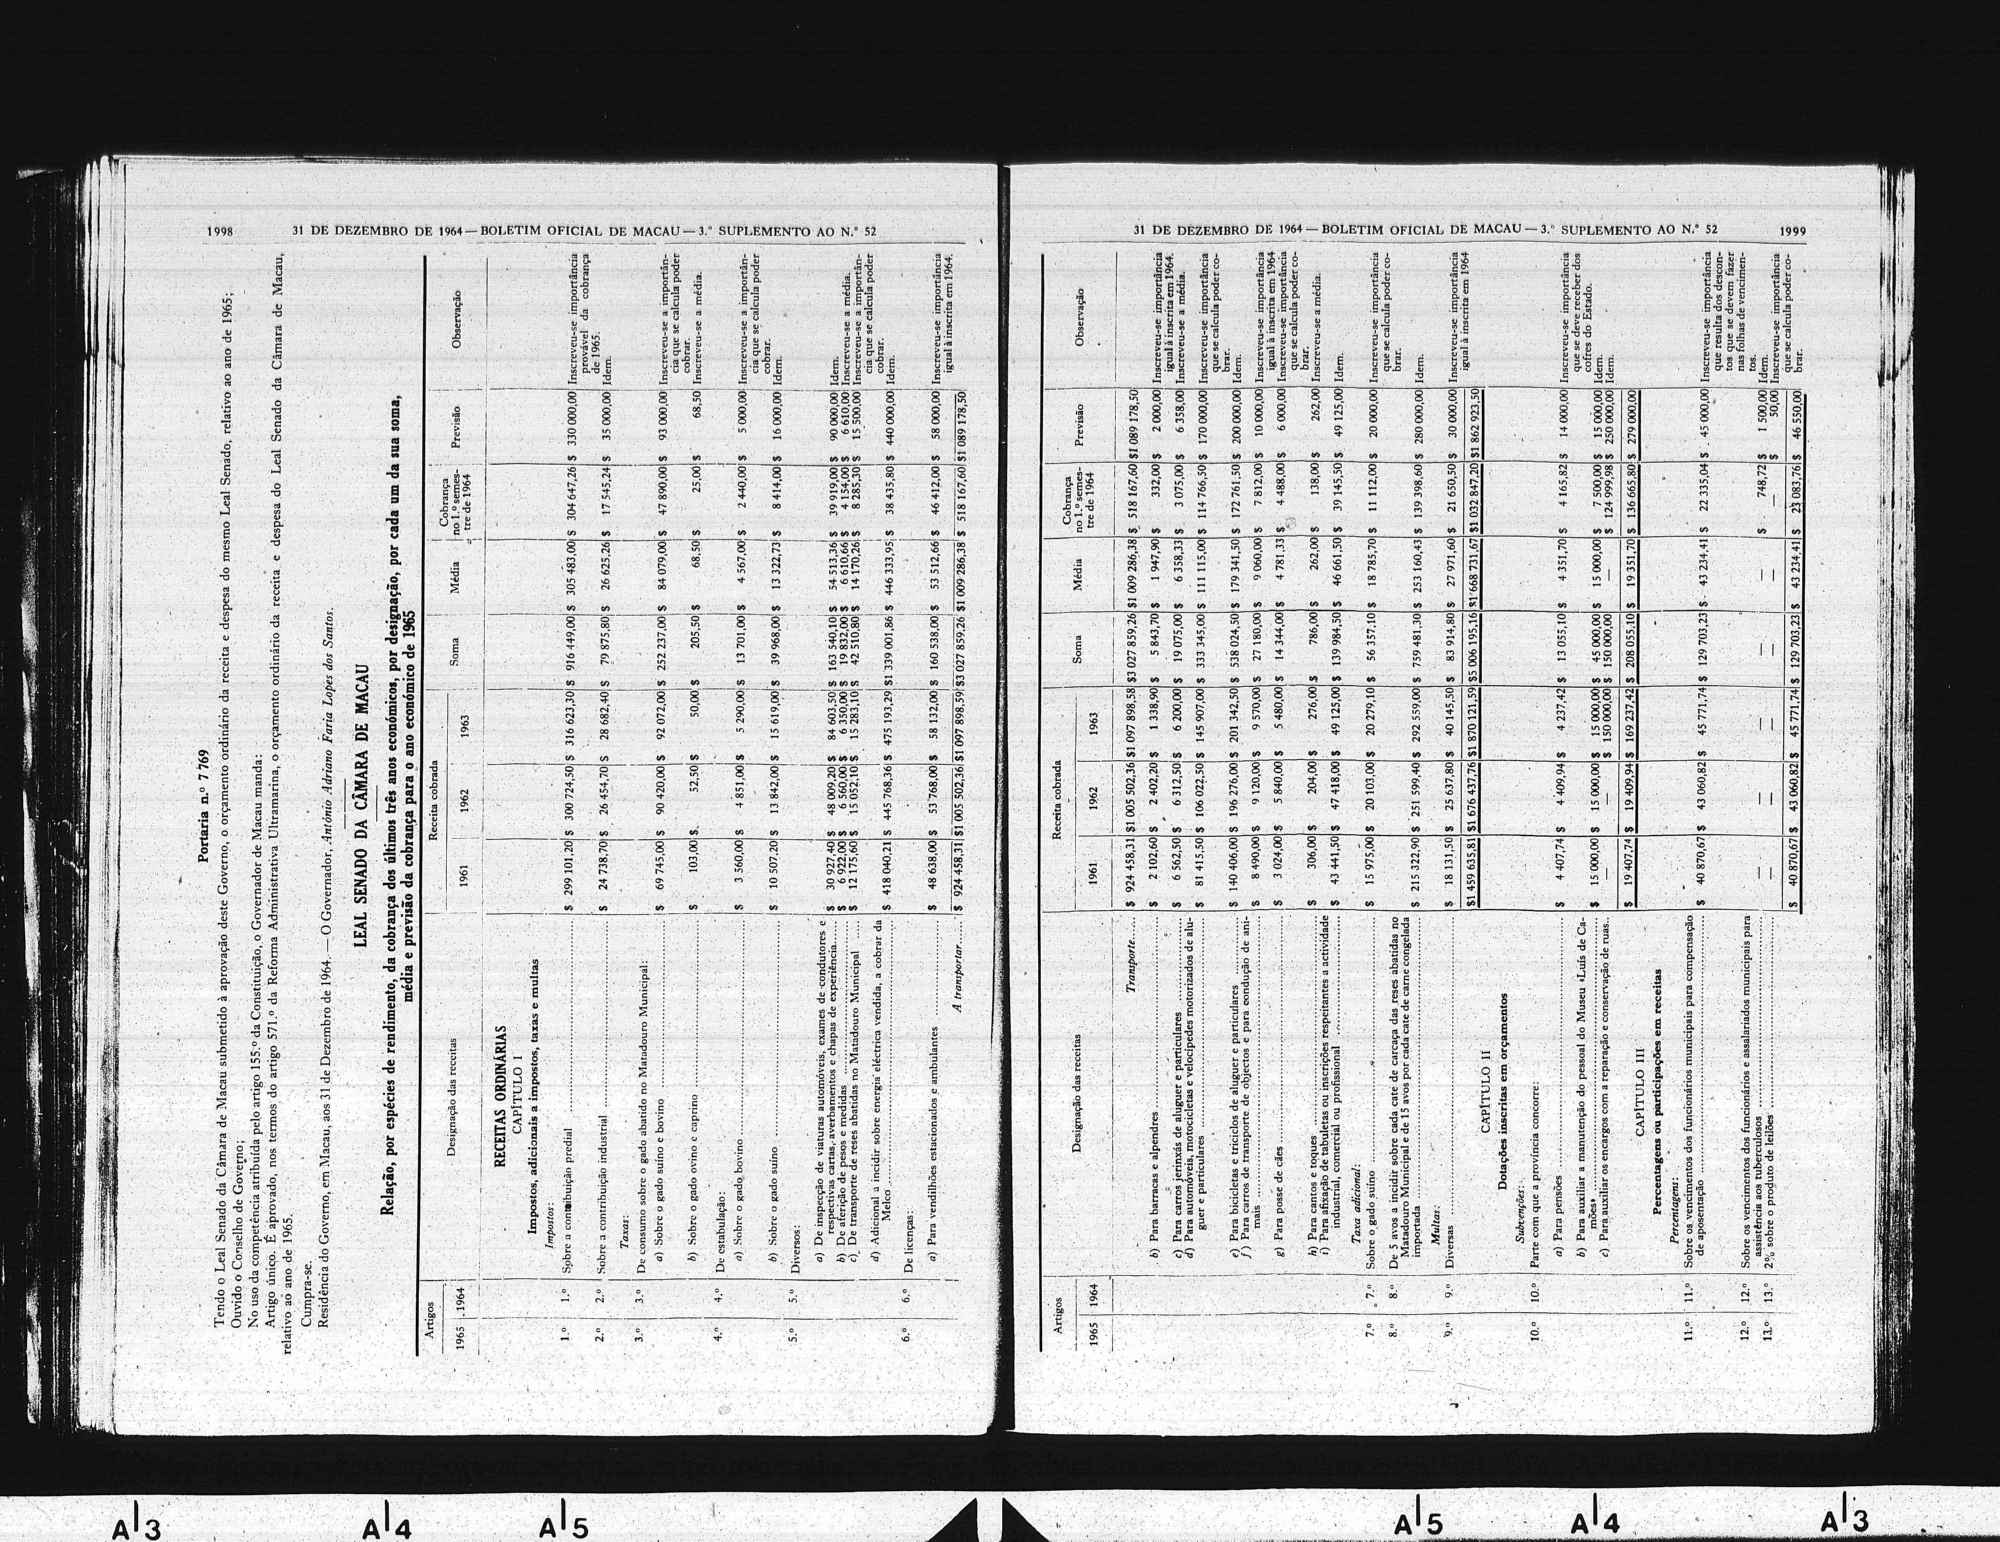 1998 31 DE DEZEMBRO DE 1964 — BOLETIM OFICIAL DE MACAU — 3.º SUPLEMENTO AO N.º 52
Portaria n.º 7 769
Tendo o Leal Senado da Câmara de Macau submetido à aprovação deste Governo, o orçamento ordinário da receita e despesa do mesmo Leal Senado, relativo ao ano de 1965;
Ouvido o Conselho de Governo;
No uso da competência atribuída pelo artigo 155.º da Constituição, o Governador de Macau manda:
Artigo único. É aprovado, nos termos do artigo 571.º da Reforma Administrativa Ultramarina, o orçamento ordinário da receita e despesa do Leal Senado da Câmara de Macau,
relativo ao ano de 1965.
Cumpra-se.
Residência do Governo, em Macau, aos 31 de Dezembro de 1964. — O Governador, António Adriano Faria Lopes dos Santos.
LEAL SENADO DA CÂMARA DE MACAU
Relação, por espécies de rendimento, da cobrança dos últimos três anos económicos, por designação, por cada um da sua soma,
média e previsão da cobrança para o ano económico de 1965
Artigos Designação das receitas Receita cobrada Soma Média Cobrança no 1.º semestre de 1964 Previsão Observação
1965 1964 1961 1962 1963
RECEITAS ORDINÁRIAS
CAPÍTULO I
Impostos, adicionais a impostos, taxas e multas
Impostos:
1.º 1.º Sobre a contribuição predial $ 299 101,20 $ 300 724,50 $ 316 623,30 $ 916 449,00 $ 305 483,00 $ 304 647,26 $ 330 000,00 Inscreveu-se importância
provável da cobrança
de 1965.
2.º 2.º Sobre a contribuição industrial $ 24 738,70 $ 26 454,70 $ 28 682,40 $ 79 875,80 $ 26 625,26 $ 17 545,24 $ 35 000,00 Idem.
Taxas:
3.º 3.º De consumo sobre o gado abatido no Matadouro Municipal:
a) Sobre o gado suíno e bovino $ 69 745,00 $ 90 420,00 $ 92 072,00 $ 252 237,00 $ 84 079,00 $ 47 890,00 $ 93 000,00 Inscreveu-se a importân-
cia que se calcula poder
cobrar.
b) Sobre o gado ovino e caprino $ 103,00 $ 52,50 $ 50,00 $ 205,50 $ 68,50 $ 25,00 $ 68,50 Inscreveu-se a média.
4.º 4.º De estabulação:
a) Sobre o gado bovino $ 3 560,00 $ 4 851,00 $ 5 290,00 $ 13 701,00 $ 4 567,00 $ 2 440,00 $ 5 000,00 Inscreveu-se a importân-
cia que se calcula poder
cobrar.
b) Sobre o gado suíno $ 10 507,20 $ 13 842,00 $ 15 619,00 $ 39 968,00 $ 13 322,73 $ 8 414,00 $ 16 000,00 Idem.
5.º 5.º Diversos:
a) De inspecção de viaturas automóveis, exames de condutores e
respectivas cartas, averbamentos e chapas de experiência $ 30 927,40 $ 48 009,20 $ 84 603,50 $ 163 540,10 $ 54 513,36 $ 39 919,00 $ 90 000,00 Idem.
b) De aferição de pesos e medidas $ 6 922,00 $ 6 560,00 $ 6 350,00 $ 19 832,00 $ 6 610,66 $ 4 154,00 $ 6 610,00 Inscreveu-se a média.
c) De transporte de reses abatidas no Matadouro Municipal $ 12 175,60 $ 15 052,10 $ 15 283,10 $ 42 510,80 $ 14 170,26 $ 8 285,30 $ 15 500,00 Inscreveu-se a importân-
cia que se calcula poder
cobrar.
d) Adicional a incidir sobre energia eléctrica vendida, a cobrar da
Melco $ 418 040,21 $ 445 768,36 $ 475 193,29 $1 339 001,86 $ 446 333,95 $ 38 435,80 $ 440 000,00 Idem.
6.º 6.º De licenças:
a) Para vendilhões estacionados e ambulantes $ 48 638,00 $ 53 768,00 $ 58 132,00 $ 160 538,00 $ 53 512,66 $ 46 412,00 $ 58 000,00 Inscreveu-se importância
igual à inscrita em 1964.
A transportar $ 924 458,31 $1 005 502,36 $1 097 898,59 $3 027 859,26 $1 009 286,38 $ 518 167,60 $1 089 178,50
31 DE DEZEMBRO DE 1964 — BOLETIM OFICIAL DE MACAU — 3.º SUPLEMENTO AO N.º 52 1999
Artigos Designação das receitas Receita cobrada Soma Média Cobrança no 1.º semestre de 1964 Previsão Observação
1965 1964 1961 1962 1963
Transporte $ 924 458,31 $1 005 502,36 $1 097 898,58 $3 027 859,26 $1 009 286,38 $ 518 167,60 $1 089 178,50
b) Para barracas e alpendres $ 2 102,60 $ 2 402,20 $ 1 338,90 $ 5 843,70 $ 1 947,90 $ 332,00 $ 2 000,00 Inscreveu-se importância
igual à inscrita em 1964.
c) Para carros jerinxás de aluguer e particulares $ 6 562,50 $ 6 312,50 $ 6 200,00 $ 19 075,00 $ 6 358,33 $ 3 075,00 $ 6 358,00 Inscreveu-se a média.
d) Para automóveis, motocicletas e velocípedes motorizados de alu-
guer e particulares $ 81 415,50 $ 106 022,50 $ 145 907,00 $ 333 345,00 $ 111 115,00 $ 114 766,50 $ 170 000,00 Inscreveu-se importância
que se calcula poder co-
brar.
e) Para bicicletas e triciclos de aluguer e particulares $ 140 406,00 $ 196 276,00 $ 201 342,50 $ 538 024,50 $ 179 341,50 $ 172 761,50 $ 200 000,00 Idem.
f) Para carros de transporte de objectos e para condução de ani-
mais $ 8 490,00 $ 9 120,00 $ 9 570,00 $ 27 180,00 $ 9 060,00 $ 7 812,00 $ 10 000,00 Inscreveu-se importância
igual à inscrita em 1964
g) Para posse de cães $ 3 024,00 $ 5 840,00 $ 5 480,00 $ 14 344,00 $ 4 781,33 $ 4 488,00 $ 6 000,00 Inscreveu-se importância
que se calcula poder co-
brar.
h) Para cantos e toques $ 306,00 $ 204,00 $ 276,00 $ 786,00 $ 262,00 $ 138,00 $ 262,00 Inscreveu-se a média.
i) Para afixação de tabuletas ou inscrições respeitantes a actividade
industrial, comercial ou profissional $ 43 441,50 $ 47 418,00 $ 49 125,00 $ 139 984,50 $ 46 661,50 $ 39 145,50 $ 49 125,00 Idem.
Taxa adicional:
7.º 7.º Sobre o gado suíno $ 15 975,00 $ 20 103,00 $ 20 279,10 $ 56 357,10 $ 18 785,70 $ 11 112,00 $ 20 000,00 Inscreveu-se importância
que se calcula poder co-
brar.
8.º 8.º De 5 avos a incidir sobre cada cate de carcaça das reses abatidas no
Matadouro Municipal e de 15 avos por cada cate de carne congelada
importada $ 215 322,90 $ 251 599,40 $ 292 559,00 $ 759 481,30 $ 253 160,43 $ 139 398,60 $ 280 000,00 Idem.
Multas:
9.º 9.º Diversas $ 18 131,50 $ 25 637,80 $ 40 145,50 $ 83 914,80 $ 27 971,60 $ 21 650,50 $ 30 000,00 Inscreveu-se importância
igual à inscrita em 1964
$1 459 635,81 $1 676 437,76 $1 870 121,59 $5 006 195,16 $1 668 731,67 $1 032 847,20 $1 862 923,50
CAPÍTULO II
Dotações inscritas em orçamentos
Subvenções:
10.º 10.º Parte com que a província concorre:
a) Para pensões $ 4 407,74 $ 4 409,94 $ 4 237,42 $ 13 055,10 $ 4 351,70 $ 4 165,82 $ 14 000,00 Inscreveu-se importância
que se deve receber dos
cofres do Estado.
b) Para auxiliar a manutenção do pessoal do Museu «Luís de Ca-
mões» $ 15 000,00 $ 15 000,00 $ 15 000,00 $ 45 000,00 $ 15 000,00 $ 7 500,00 $ 15 000,00 Idem
c) Para auxiliar os encargos com a reparação e conservação de ruas — — $ 150 000,00 $ 150 000,00 $ — $ 124 999,98 $ 250 000,00 Idem
$ 19 407,74 $ 19 409,94 $ 169 237,42 $ 208 055,10 $ 19 351,70 $ 136 665,80 $ 279 000,00
CAPÍTULO III
Percentagens ou participações em receitas
Percentagens:
11.º 11.º Sobre os vencimentos dos funcionários municipais para compensação
de aposentação $ 40 870,67 $ 43 060,82 $ 45 771,74 $ 129 703,23 $ 43 234,41 $ 22 335,04 $ 45 000,00 Inscreveu-se importância
que resulta dos descon-
tos que se devem fazer
nas folhas de vencimen-
tos.
12.º 12.º Sobre os vencimentos dos funcionários e assalariados municipais para
assistência aos tuberculosos — — — — — $ 748,72 $ 1 500,00 Idem.
13.º 13.º 2% sobre o produto de leilões — — — — — — $ 50,00 Inscreveu-se importância
que se calcula poder co-
brar.
$ 40 870,67 $ 43 060,82 $ 45 771,74 $ 129 703,23 $ 43 234,41 $ 23 083,76 $ 46 550,00
A 3 A 4 A 5 A 5 A 4 A 3